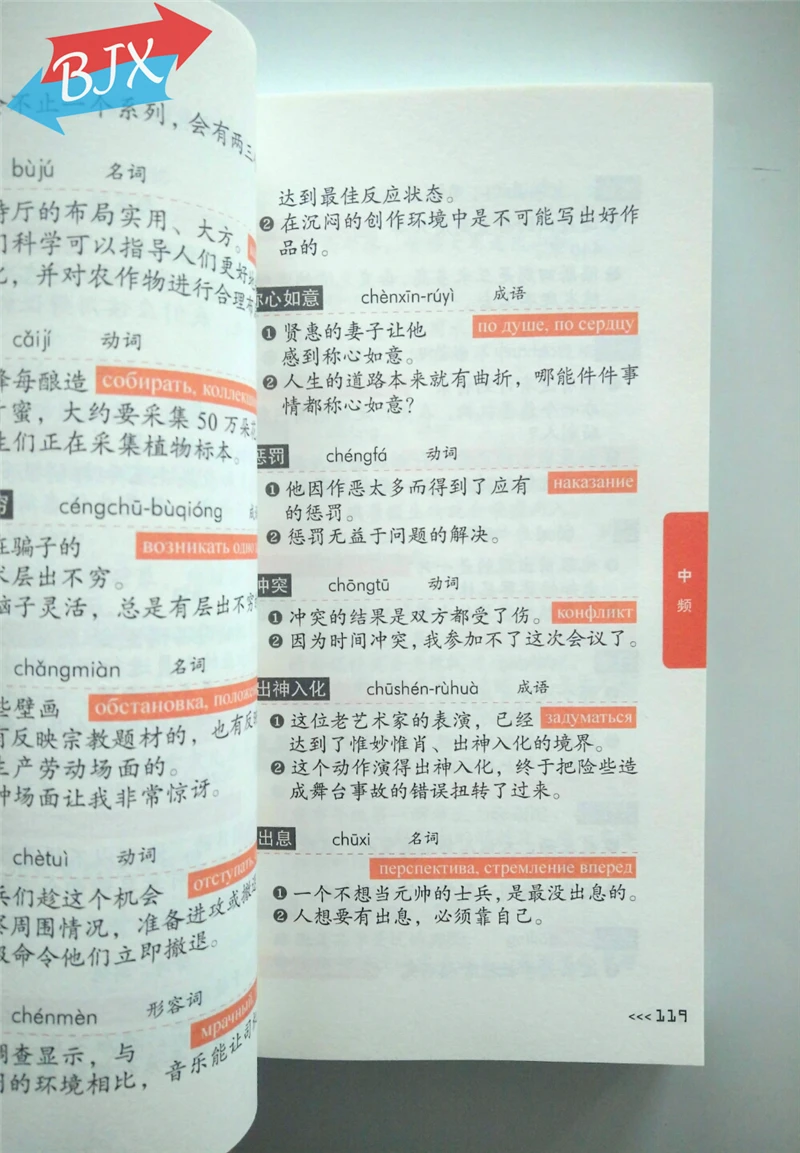 BJX
不止一个系列，会有两三
bùjú 名词
厅的布局实用、大方。
们科学可以指导人们更好地
化，并对农作物进行合理布
cǎijí 动词
蜂每酿造 собирать, коллекц
蜜，大约要采集 50 万朵花
生们正在采集植物标本。
穷 céngchū-bùqióng
在骗子的 возникать
层出不穷。
脑子灵活，总是有层出不穷的
chǎngmiàn 名词
些壁画 обстановка, положе
有反映宗教题材的，也有反映
生产劳动场面的。
种场面让我非常惊讶。
chètuì 动词
兵们趁这个机会 отступать
察周围情况，准备进攻或撤退
级命令他们立即撤退。
chénmèn 形容词
调查显示，与 мрачный
的环境相比，音乐能让司
达到最佳反应状态。
❷ 在沉闷的创作环境中是不可能写出好作
品的。
称心如意 chènxīn-rúyì 成语
❶ 贤惠的妻子让他 по душе, по сердцу
感到称心如意。
❷ 人生的道路本来就有曲折，哪能件件事
情都称心如意？
惩罚 chéngfá 动词
❶ 他因作恶太多而得到了应有 наказание
的惩罚。
❷ 惩罚无益于问题的解决。
冲突 chōngtū 动词
❶ 冲突的结果是双方都受了伤。 конфликт
❷ 因为时间冲突，我参加不了这次会议了。
出神入化 chūshén-rùhuà 成语
❶ 这位老艺术家的表演，已经 задуматься
达到了惟妙惟肖、出神入化的境界。
❷ 这个动作演得出神入化，终于把险些造
成舞台事故的错误扭转了过来。
出息 chūxi 名词
перспектива, стремление вперед
❶ 一个不想当元帅的士兵，是最没出息的。
❷ 人想要有出息，必须靠自己。
中频
<<< 119